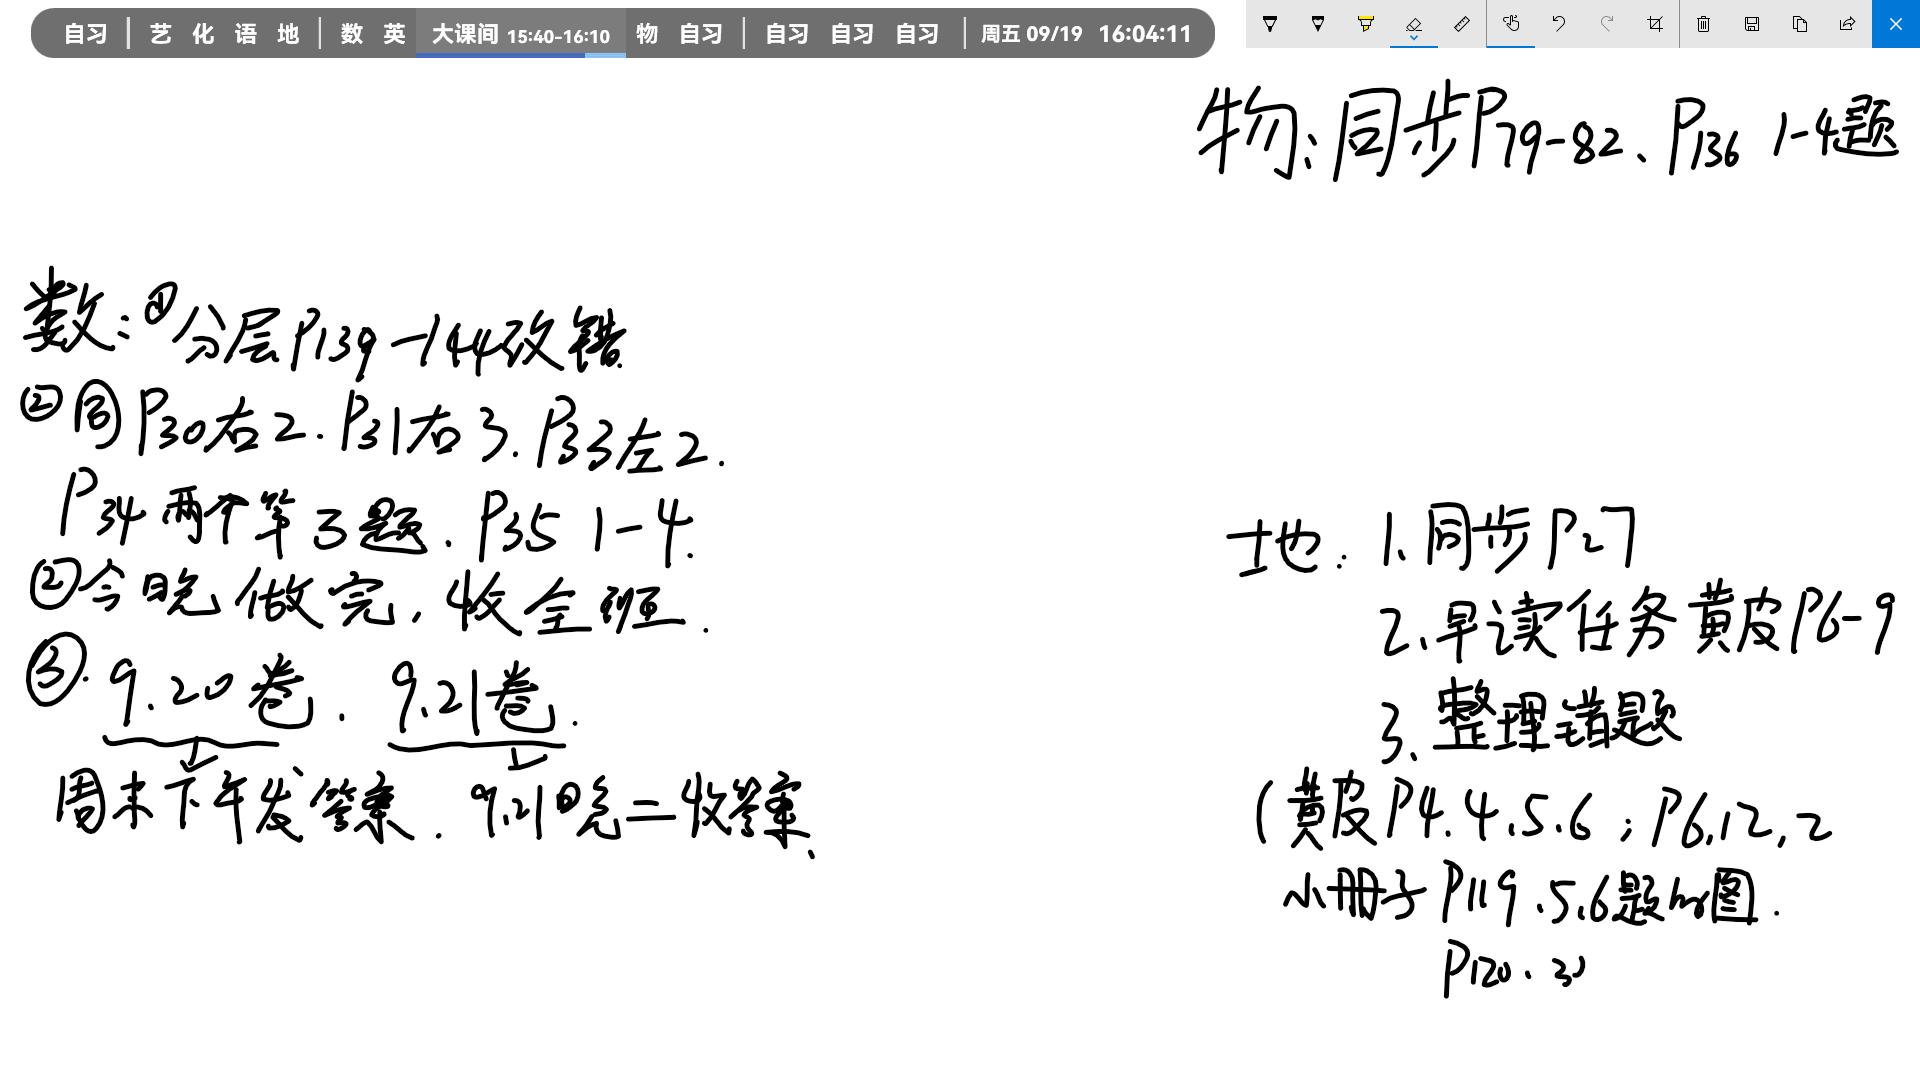 自习 | 艺 化 语 地 | 数 英 大课间 15:40-16:10 物 自习 | 自习 自习 自习 | 周五 09/19 16:04:11
物:同步P79-82、P136 1-4题
数:①分层P139-144改错.
②同P30右2.P31右3.P33左2.
P34两个第3题.P35 1-4.
②今晚做完,收全班.
③.9.20卷.9.21卷.
周末下午发答案.9.21晚二收答案、
地:1、同步P27
2、早读任务黄皮P6-9
3、整理错题
(黄皮P4.4.5.6;P6.12,2
小册子P119.5.6题的图.
P120.